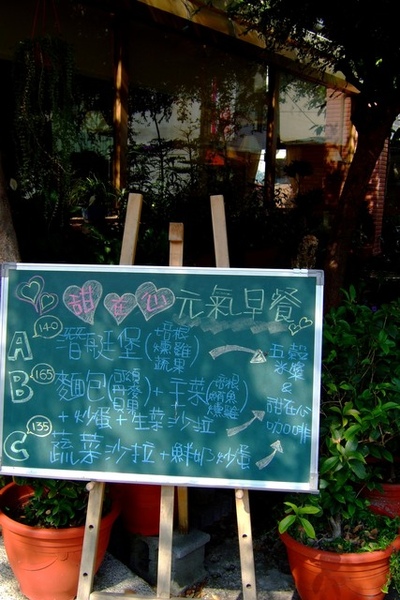 甜在心 元氣早餐
A 140 潛艇堡(培根 燻雞 蔬果)
五穀
B 165 麵包( )+主菜(培根 鮪魚 燻雞)
水漿
&
+炒蛋+生菜沙拉
甜在心
咖啡
C 135 蔬菜沙拉+鮮奶炒蛋